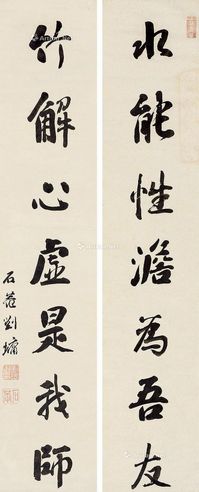 水能性澹為吾友
竹解心虛是我師
石菴劉墉